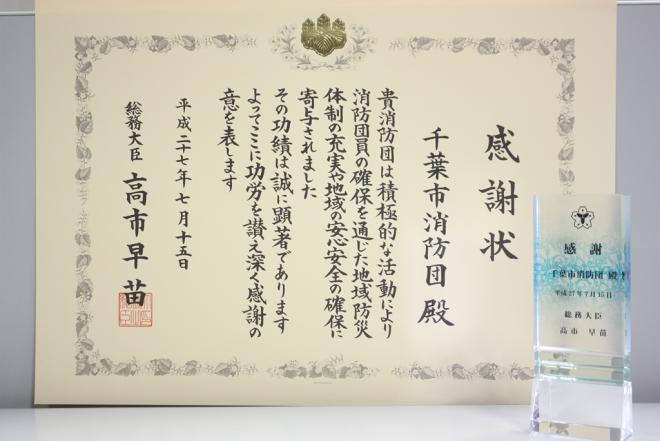 感謝状
千葉市消防団 殿
貴消防団は積極的な活動により
消防団員の確保を通じた地域防災
体制の充実や地域の安心安全の確保に
寄与されました
その功績は誠に顕著であります
よってここに功労を讃え深く感謝の
意を表します
平成二十七年七月十五日
総務大臣 高市早苗
感 謝
千葉市消防団 殿
平成27年7月15日
総務大臣
高市 早苗